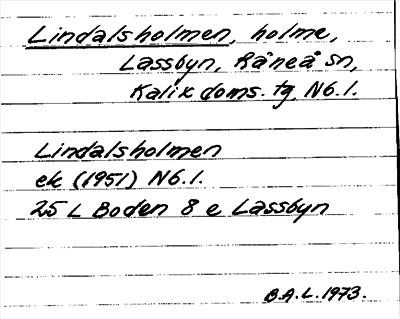 Lindalsholmen, holme,
Lassbyn, Råneå sn,
Kalix doms. tg, Nb.l.
Lindalsholmen
ek (1951) Nb.l.
25 L Boden 8 e Lassbyn
B.A.L. 1973.